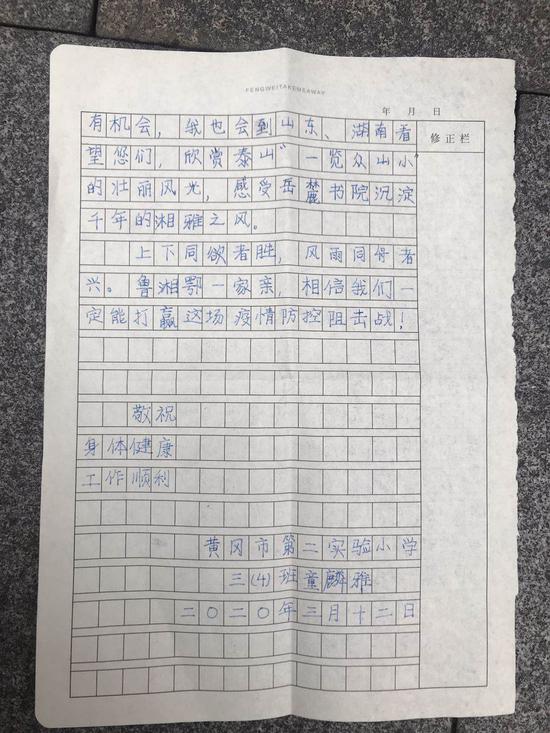 FENGWEITAKEMEAWAY
年 月 日
修正栏
有机会，我也会到山东、湖南看
望您们，欣赏泰山“一览众山小”
的壮丽风光，感受岳麓书院沉淀
千年的湘雅之风。
上下同欲者胜，风雨同舟者
兴。鲁湘鄂一家亲，相信我们一
定能打赢这场疫情防控阻击战！
敬祝
身体健康
工作顺利
黄冈市第二实验小学
三(4)班童麟雅
二〇二〇年三月十二日